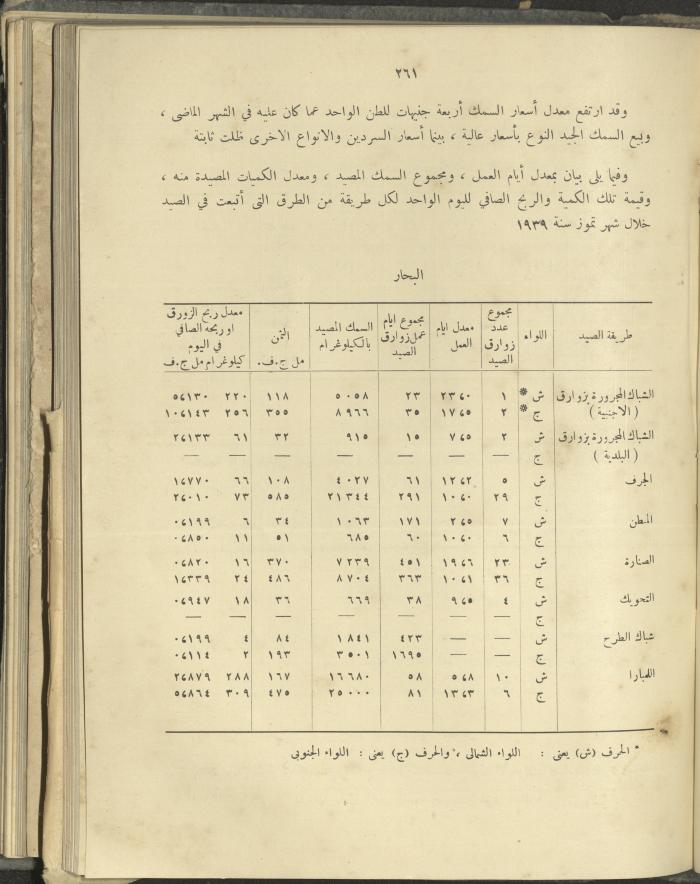 ٢٦١
وقد ارتفع معدل أسعار السمك أربعة جنيهات للطن الواحد عما كان عليه في الشهر الماضى ،
وبيع السمك الجيد النوع بأسعار عالية ، بينما أسعار السردين والانواع الاخرى ظلت ثابتة
وفيما يلى بيان بمعدل أيام العمل ، ومجموع السمك المصيد ، ومعدل الكميات المصيدة منه ،
وقيمة تلك الكمية والربح الصافي لليوم الواحد لكل طريقة من الطرق التى أتبعت في الصيد
خلال شهر تموز سنة ١٩٣٩
البحار
طريقة الصيد | اللواء | مجموع عدد زوارق الصيد | معدل ايام العمل | مجموع ايام عمل زوارق الصيد | السمك المصيد بالكيلوغرام | الثمن مل ج.ف. | معدل ربح الزورق او ربحه الصافي في اليوم كيلوغرام مل ج.ف
الشباك المجرورة بزوارق ش * ١ ٢٣،٠ ٢٣ ٥٠٥٨ ١١٨ ٢٢٠ ٥،١٣٠
( الاجنبية ) ج * ٢ ١٧،٥ ٣٥ ٨٩٦٦ ٣٥٥ ٢٥٦ ١٠،١٤٣
الشباك المجرورة بزوارق ش ٢ ٧،٥ ١٥ ٩١٥ ٣٢ ٦١ ٢،١٣٣
( البلدية ) ج — — — — — — —
الجرف ش ٥ ١٢،٢ ٦١ ٤٠٢٧ ١٠٨ ٦٦ ١،٧٧٠
ج ٢٩ ١٠،٠ ٢٩١ ٢١٣٤٤ ٥٨٥ ٧٣ ٢،٠١٠
المطن ش ٧ ٢،٥ ١٧١ ١٠٦٣ ٣٤ ٦ ٠،١٩٩
ج ٦ ١٠،٠ ٦٠ ٦٨٥ ٥١ ١١ ٠،٨٥٠
الصنارة ش ٢٣ ١٩،٦ ٤٥١ ٧٢٣٩ ٣٧٠ ١٦ ٠،٨٢٠
ج ٣٦ ١٠،١ ٣٦٣ ٨٧٠٤ ٤٨٦ ٢٤ ١،٣٣٩
التحويك ش ٤ ٩،٥ ٣٨ ٦٦٩ ٣٦ ١٨ ٠،٩٤٧
ج — — — — — — —
شباك الطرح ش — — ٤٢٣ ١٨٤١ ٨٤ ٤ ٠،١٩٩
ج — — ١٦٩٥ ٣٥٠١ ١٩٣ ٢ ٠،١١٤
اللمبارا ش ١٠ ٥،٨ ٥٨ ١٦٦٨٠ ١٦٧ ٢٨٨ ٢،٨٧٩
ج ٦ ١٣،٣ ٨١ ٢٥٠٠٠ ٤٧٥ ٣٠٩ ٥،٨٦٤
* الحرف (ش) يعنى : اللواء الشمالى ، والحرف (ج) يعنى : اللواء الجنوبى